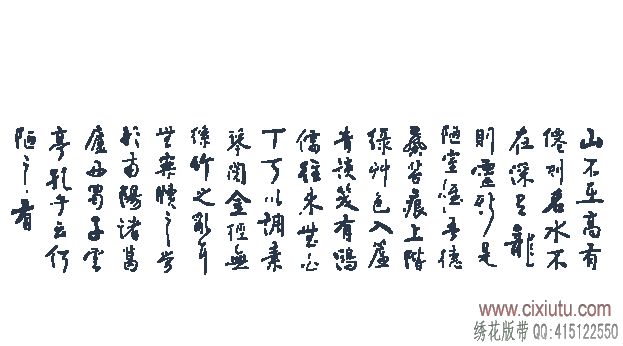 山不在高有
僊则名水不
在深有龍
則靈斯是
陋室惟吾德
馨苔痕上階
綠艸色入簾
青談笑有鴻
儒往来無白
丁可以調素
琴閱金經無
絲竹之亂耳
無案牘之勞
形南陽諸葛
廬西蜀子雲
亭孔子云何
陋之有
www.cixiutu.com
绣花版带 QQ:415122550